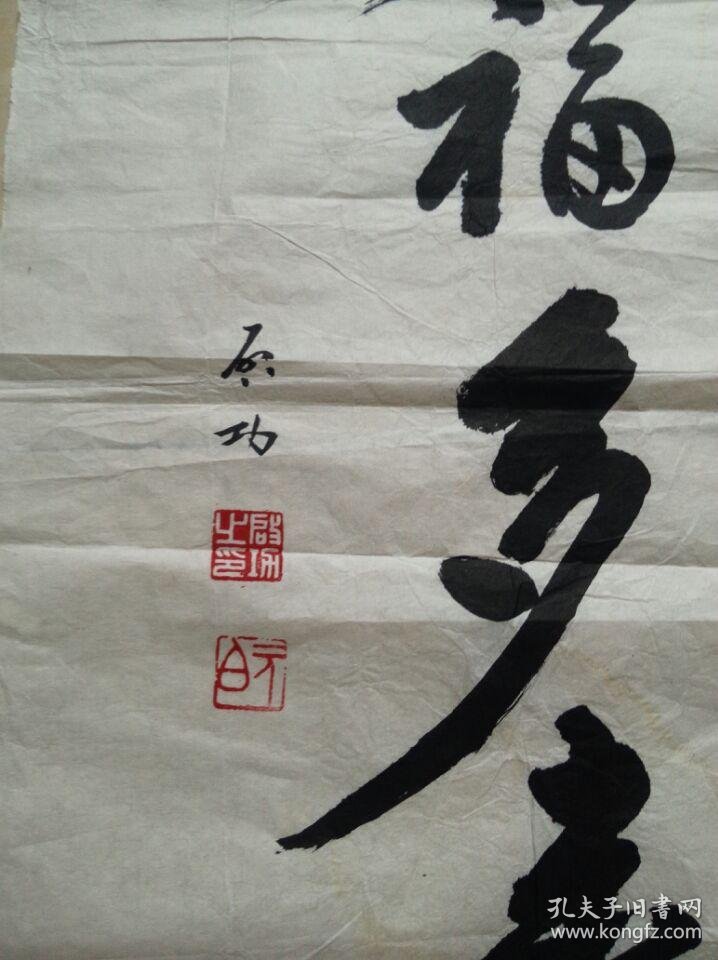 福多寿
启功
启功之印
元白
孔夫子旧书网
www.kongfz.com